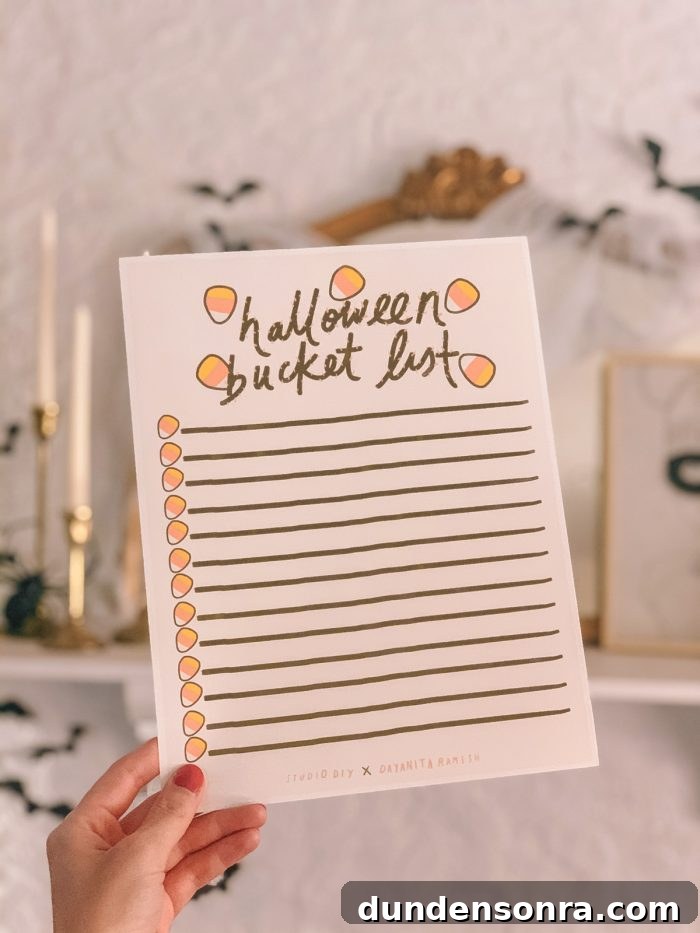 halloween
bucket list
STUDIO DIY X DAYANITA RAMESH
dundensonra.com